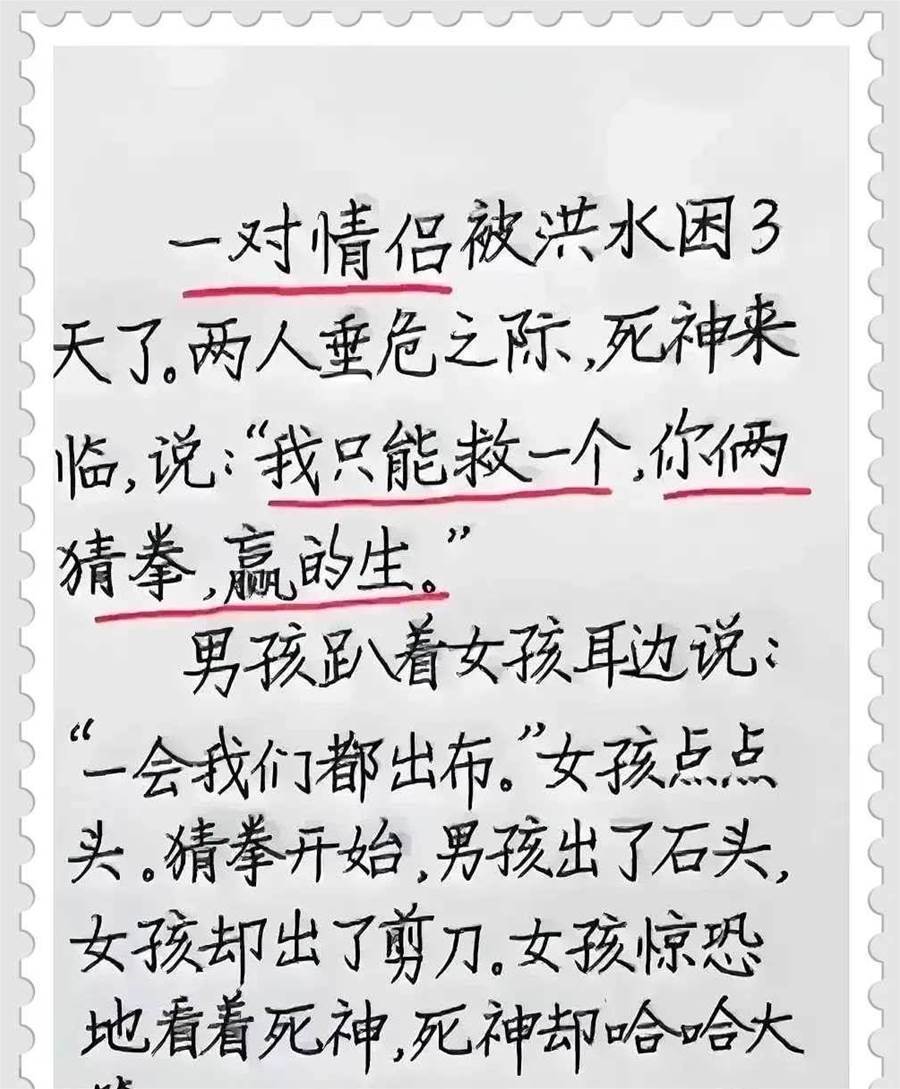 一对情侣被洪水困3
天了。两人垂危之际,死神来
临,说:“我只能救一个,你俩
猜拳,赢的生。”
男孩趴着女孩耳边说:
“一会我们都出布。”女孩点点
头。猜拳开始,男孩出了石头,
女孩却出了剪刀。女孩惊恐
地看着死神,死神却哈哈大